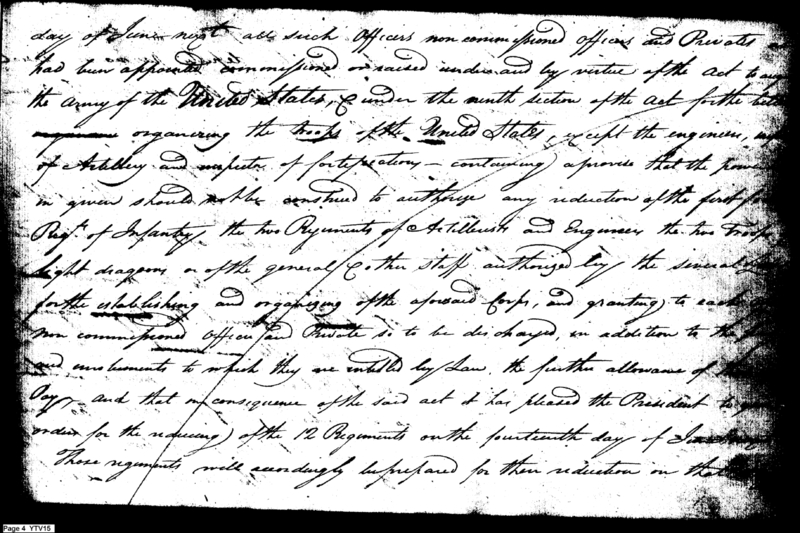 day of June next all such Officers non commissioned officers and Privates as
had been appointed commissioned or raised under and by virtue of the act to
the army of the United States, & under the ninth section of the act for the
organizing the troops of the United States, except the engineers,
of Artillery and inspector of fortifications — containing a proviso that the power
in given should not be construed to authorize any reduction of the first four
Regts. of Infantry, the two Regiments of Artillerists and Engineers the two Troops
light dragoons or of the general & other staff authorized by the several
for the establishing and organizing of the aforesaid Corps, and granting to each
non commissioned officer and Private so to be discharged, in addition to the
and emoluments to which they are entitled by Law, the further allowance of
Pay — and that in consequence of the said act it has pleased the President to
orders for the reducing of the 12 Regiments on the fourteenth day of
Those regiments will accordingly be prepared for their reduction on that
Page 4 YTV15